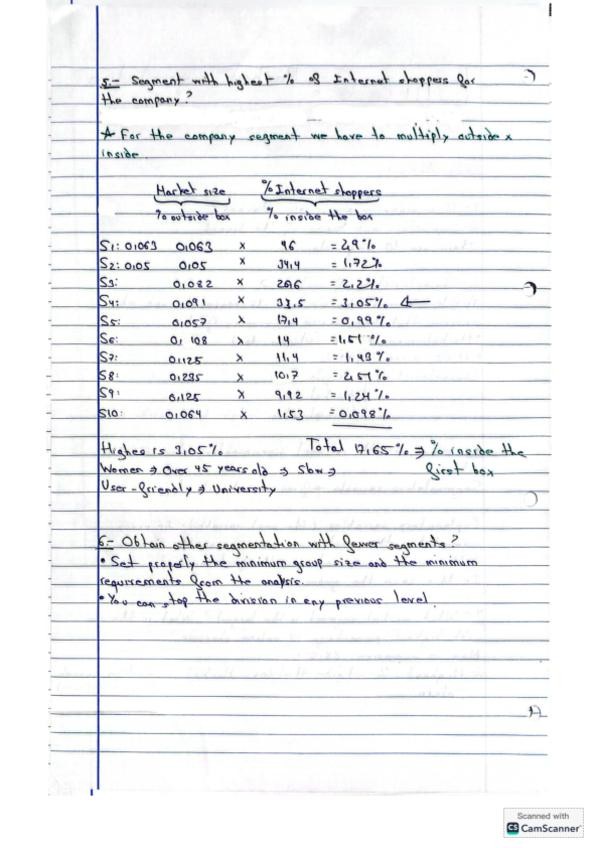 5.- Segment with highest % of Internet shoppers for
the company?
* For the company segment we have to multiply outside x
inside.
Market size % Internet shoppers
% outside box % inside the box
S1: 0,063 0,063 x 46 = 2,9%
S2: 0,05 0,05 x 34,4 = 1,72%
S3: 0,082 x 26,6 = 2,2%
S4: 0,091 x 33,5 = 3,05% ←
S5: 0,057 x 17,4 = 0,99%
S6: 0,108 x 14 = 1,51%
S7: 0,125 x 11,4 = 1,43%
S8: 0,235 x 10,7 = 2,51%
S9: 0,125 x 9,92 = 1,24%
S10: 0,064 x 1,53 = 0,098%
Highes is 3,05% Total 17,65% → % inside the
first box
Women → Over 45 years old → Slow →
User-friendly → University
6.- Obtain other segmentation with fewer segments?
• Set properly the minimum group size and the minimum
requirements from the analysis.
• You can stop the division in any previous level.
Scanned with
CS CamScanner